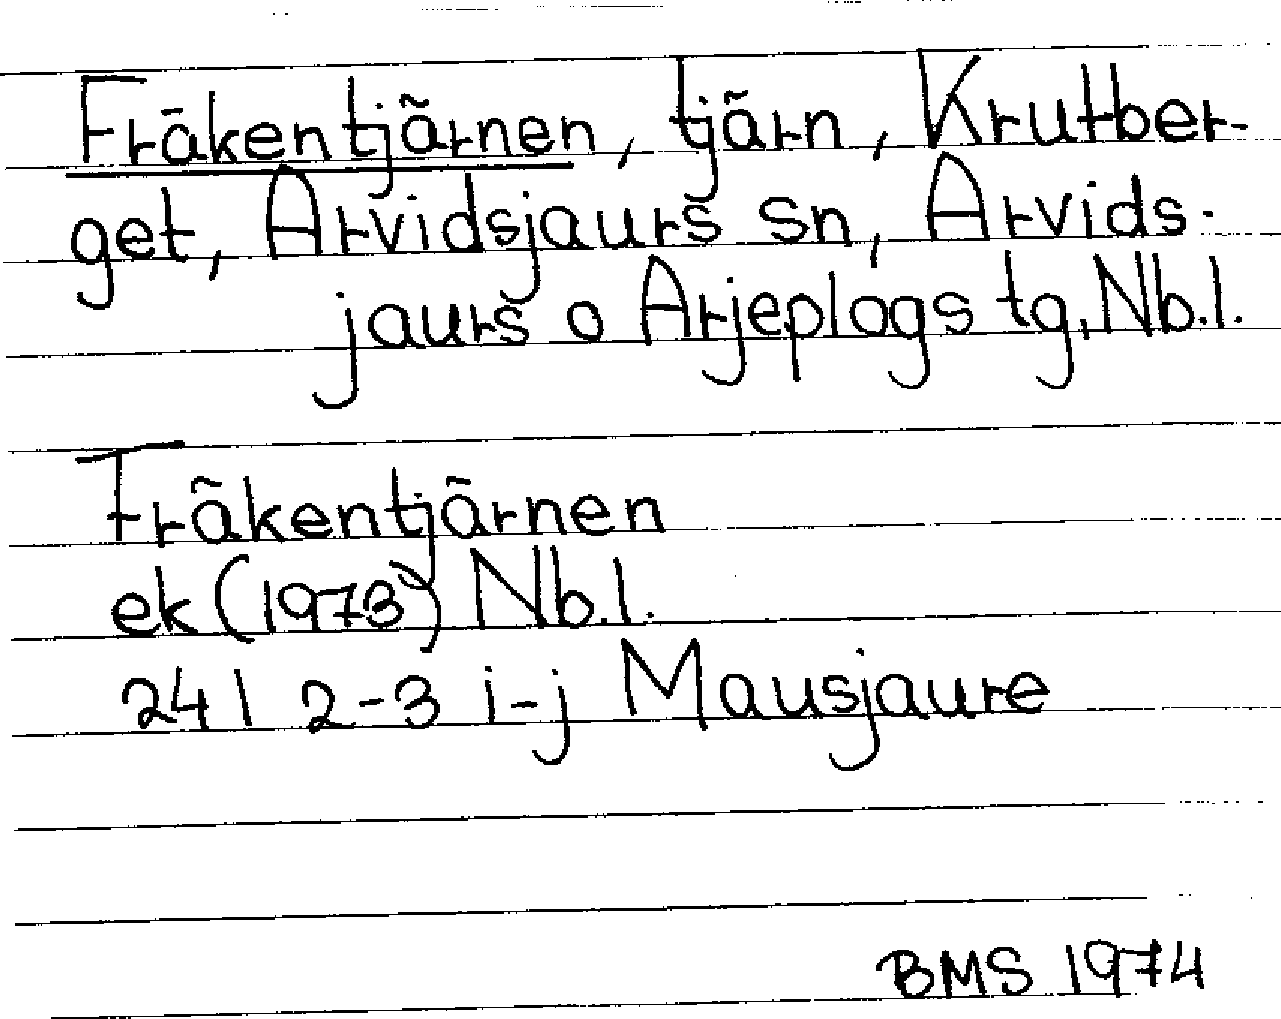 Fräkentjärnen, tjärn, Krutber-
get, Arvidsjaurs sn, Arvids-
jaurs o Arjeplogs tg, Nb.l.
Fräkentjärnen
ek (1973) Nb.l.
24I 2-3 i-j Mausjaure
BMS 1974